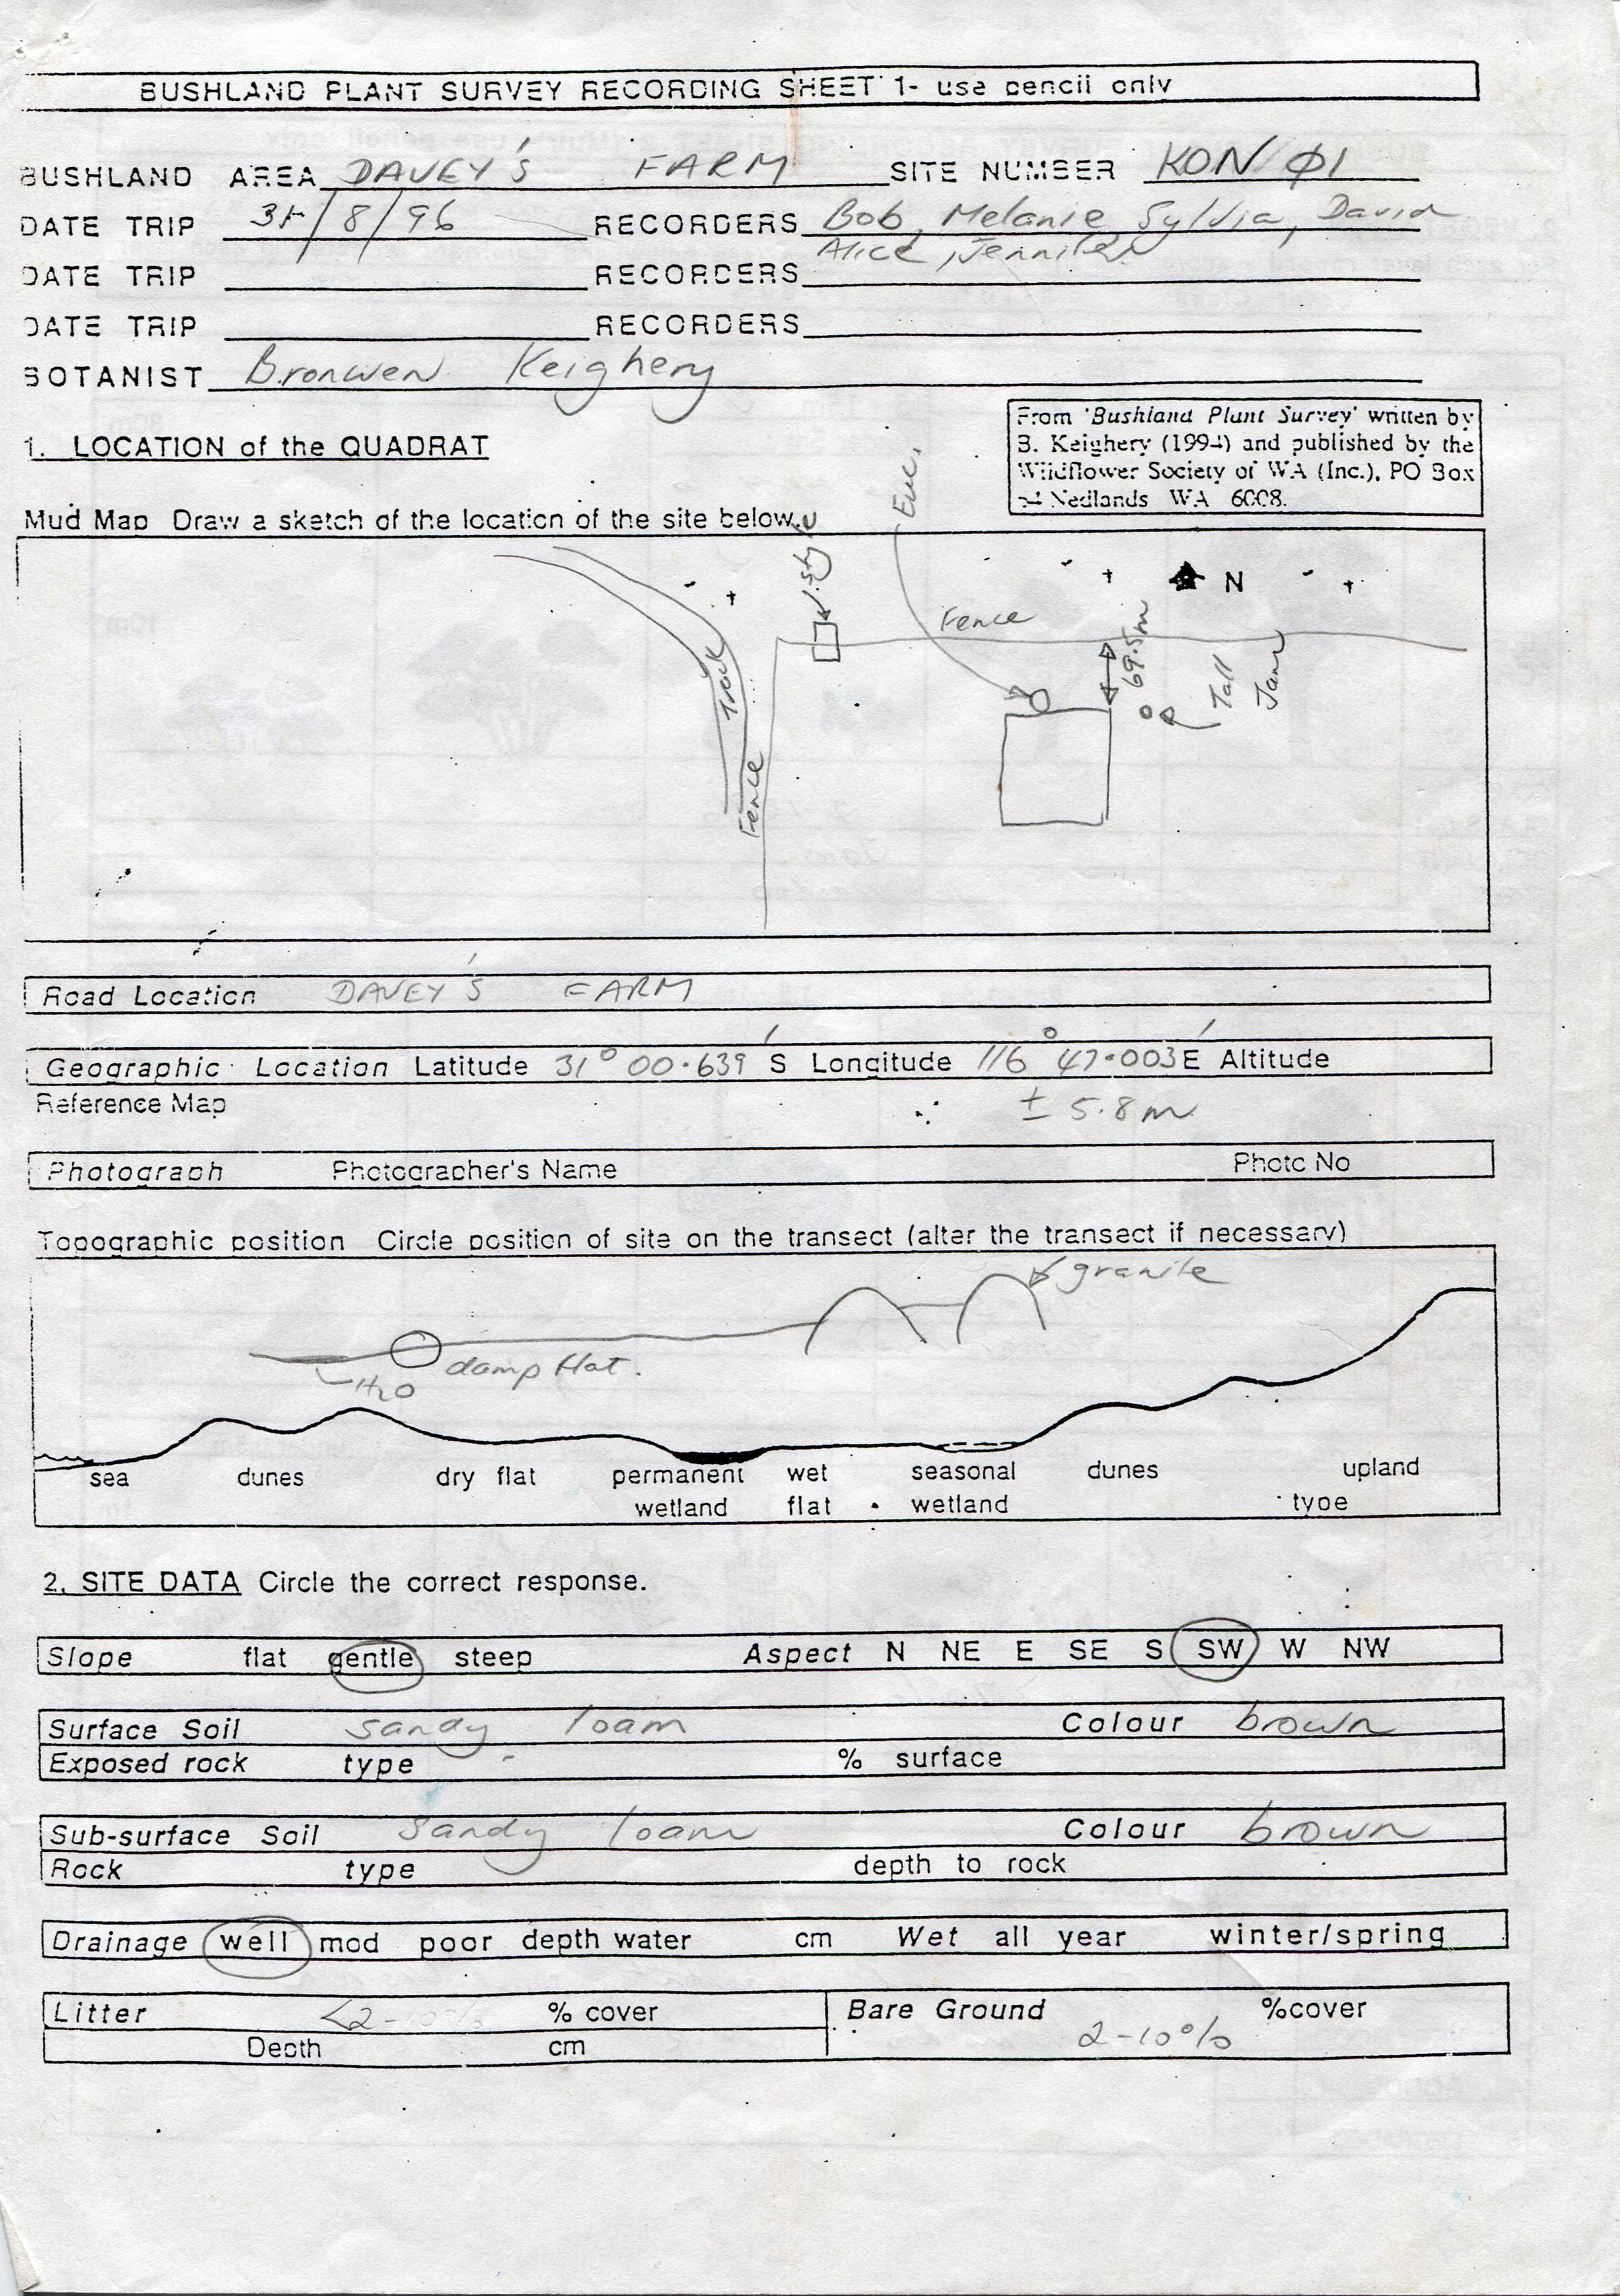 BUSHLAND PLANT SURVEY RECORDING SHEET 1- use pencil only
BUSHLAND AREA DAVEY'S FARM SITE NUMBER KON/Ø1
DATE TRIP 31/8/96 RECORDERS Bob, Melanie, Sylvia, David
Alice, Jennifer
DATE TRIP RECORDERS
DATE TRIP RECORDERS
BOTANIST Bronwen Keighery
From 'Bushland Plant Survey' written by
B. Keighery (1994) and published by the
Wildflower Society of WA (Inc.), PO Box
Nedlands WA 6008.
1. LOCATION of the QUADRAT
Mud Map Draw a sketch of the location of the site below.
Euc.
N
Fence
69.5m
Tall
Jam
Track
Fence
Road Location DAVEY'S FARM
Geographic Location Latitude 31° 00.639' S Longitude 116° 47.003' E Altitude
Reference Map ± 5.8m
Photograph Photographer's Name Photo No
Topographic position Circle position of site on the transect (alter the transect if necessary)
granite
damp flat.
H2O
sea dunes dry flat permanent wet seasonal dunes upland
wetland flat wetland type
2. SITE DATA Circle the correct response.
Slope flat gentle steep Aspect N NE E SE S SW W NW
Surface Soil sandy loam Colour brown
Exposed rock type - % surface
Sub-surface Soil sandy loam Colour brown
Rock type depth to rock
Drainage well mod poor depth water cm Wet all year winter/spring
Litter <2-10% % cover Bare Ground %cover
2-10%
Depth cm